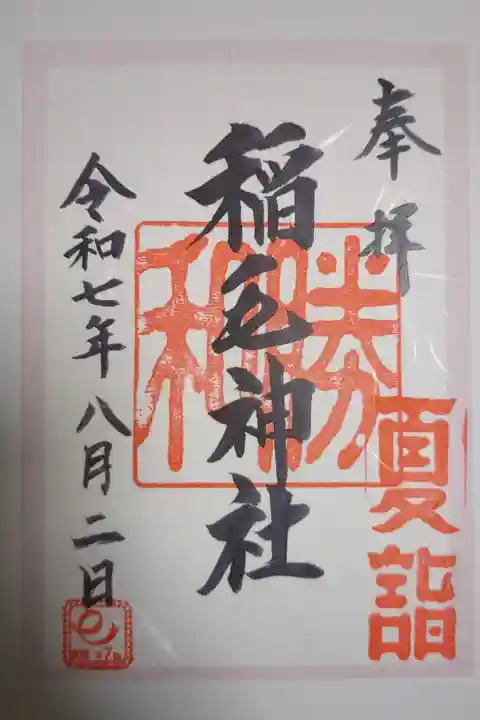 奉拝
夏詣
勝和
稲毛神社
令和七年八月二日